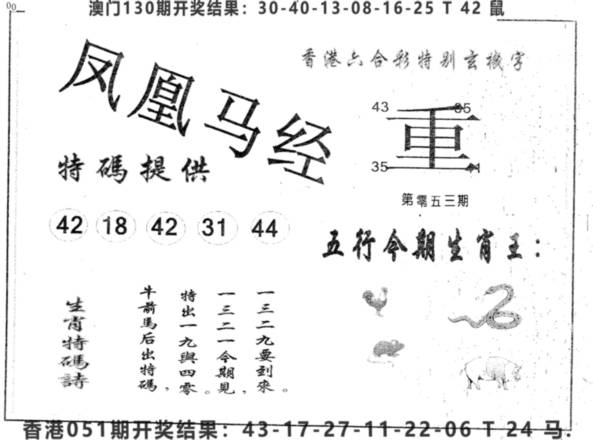 澳门130期开奖结果：30-40-13-08-16-25 T 42 鼠
凤凰马经
香港六合彩特别玄機字
43
35
重
35
第零五三期
特碼提供
42 18 42 31 44
五行今期生肖王：
一三二九要到來。
一三二一今期見，
特出一九與四零。
牛前馬后出特碼，
生肖特碼詩
香港051期开奖结果：43-17-27-11-22-06 T 24 马.